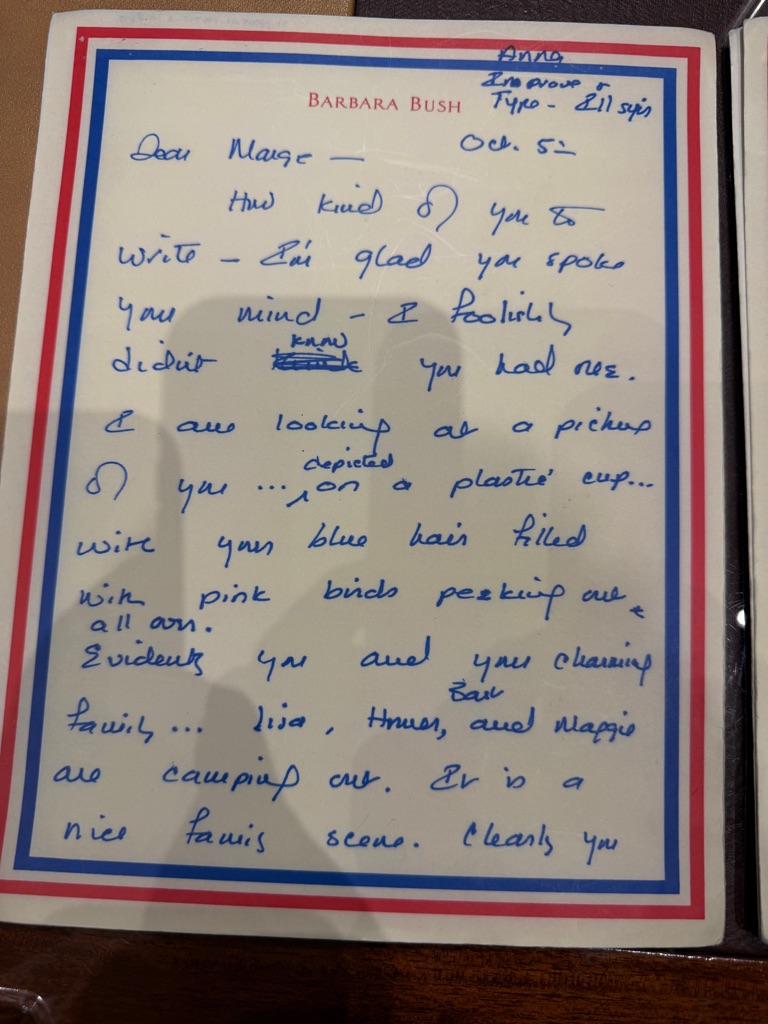 Anna
Improve &
Type - I'll sign
BARBARA BUSH
Oct. 5th
Dear Marge —
How kind of you to
write - I'm glad you spoke
your mind - I foolishly
didn't know you had one.
I am looking at a picture
of you ... depicted on a plastic cup...
with your blue hair filled
with pink birds peeking out
all over.
Evidently you and your charming
family... Lisa, Homer, Bart and Maggie
are camping out. It is a
nice family scene. Clearly you